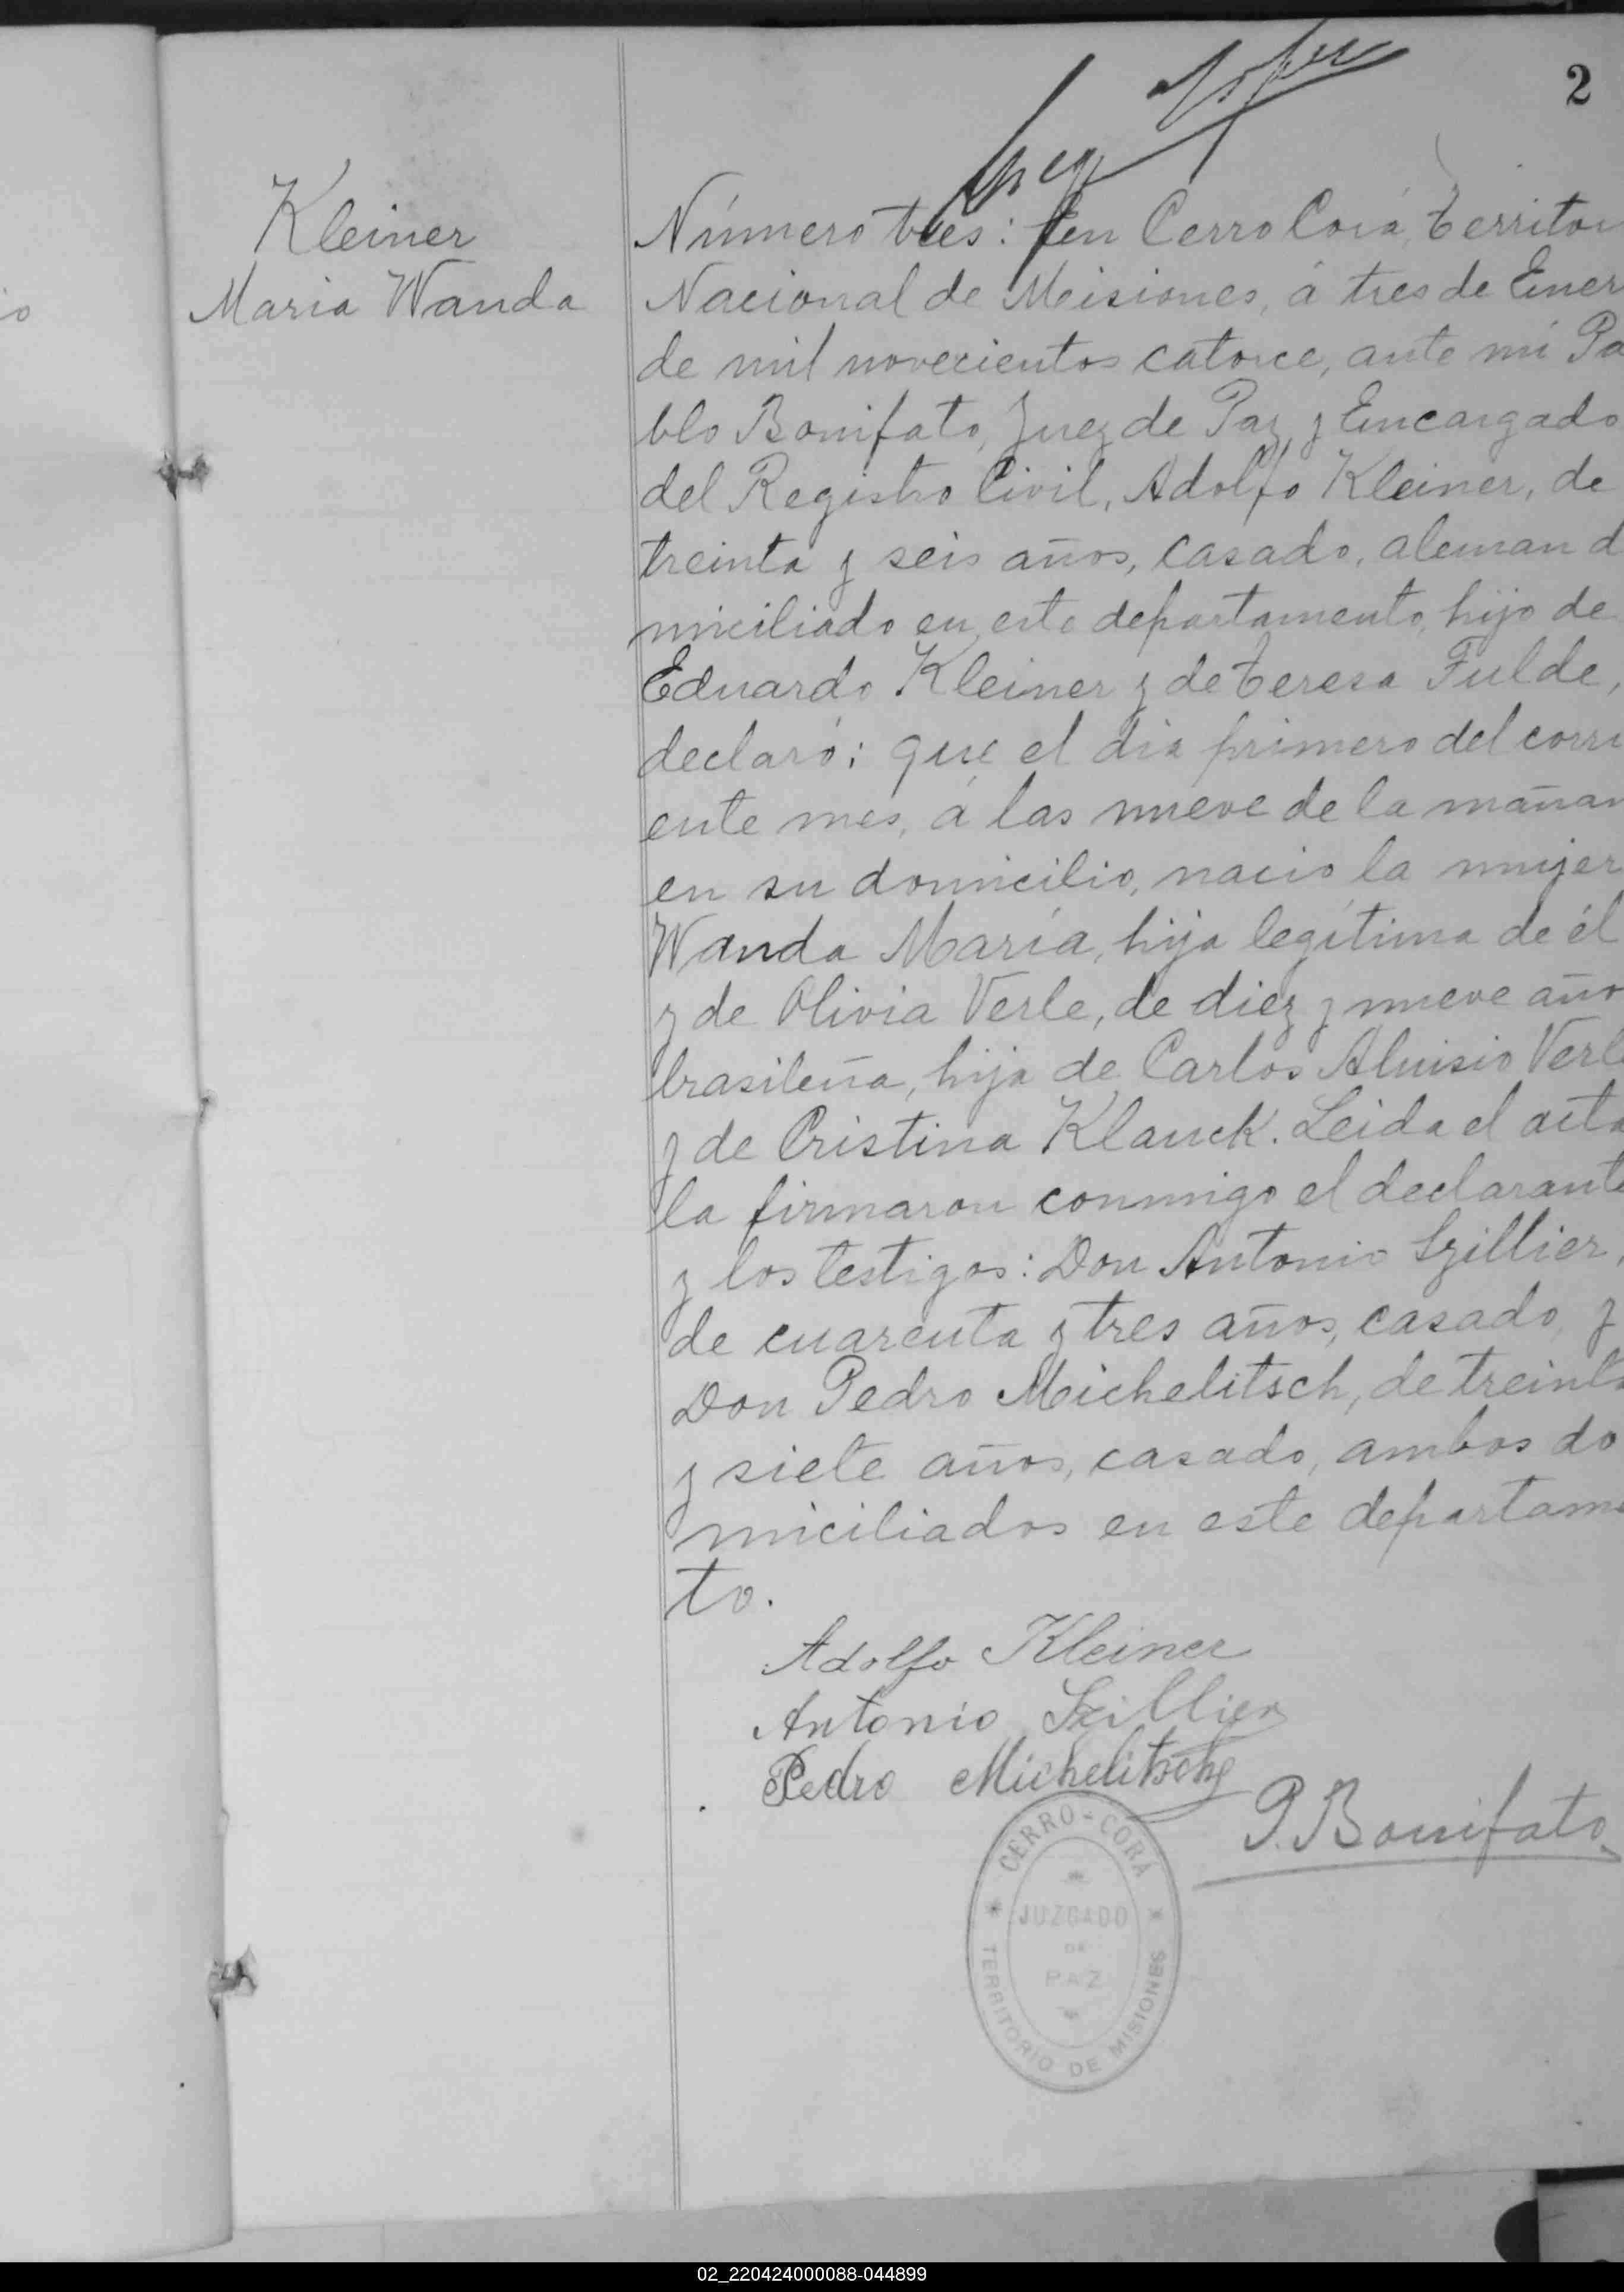 2
Kleiner
Maria Wanda
Número tres: En Cerro Corá, Territor
Nacional de Misiones, á tres de Ener
de mil novecientos catorce, ante mi Pa
blo Bonifato, Juez de Paz y Encargado
del Registro Civil, Adolfo Kleiner, de
treinta y seis años, casado, aleman d
miciliado en este departamento, hijo de
Eduardo Kleiner y de Teresa Fulde,
declaró: que el dia primero del corri
ente mes, á las nueve de la mañan
en su domicilio, nacio la mujer
Wanda María, hija legítima de él
y de Olivia Verle, de diez y nueve año
brasileña, hija de Carlos Aluisio Verle
y de Cristina Klauck. Leida el acta
la firmaron conmigo el declarante
y los testigos: Don Antonio Szillier,
de cuarenta y tres años, casado, y
Don Pedro Michelitsch, de treinta
y siete años, casado, ambos do
miciliados en este departame
to.
Adolfo Kleiner
Antonio Szillier
Pedro Michelitsch
P. Bonifato
CERRO-CORÁ
JUZGADO
DE
PAZ
TERRITORIO DE MISIONES
02_220424000088-044899